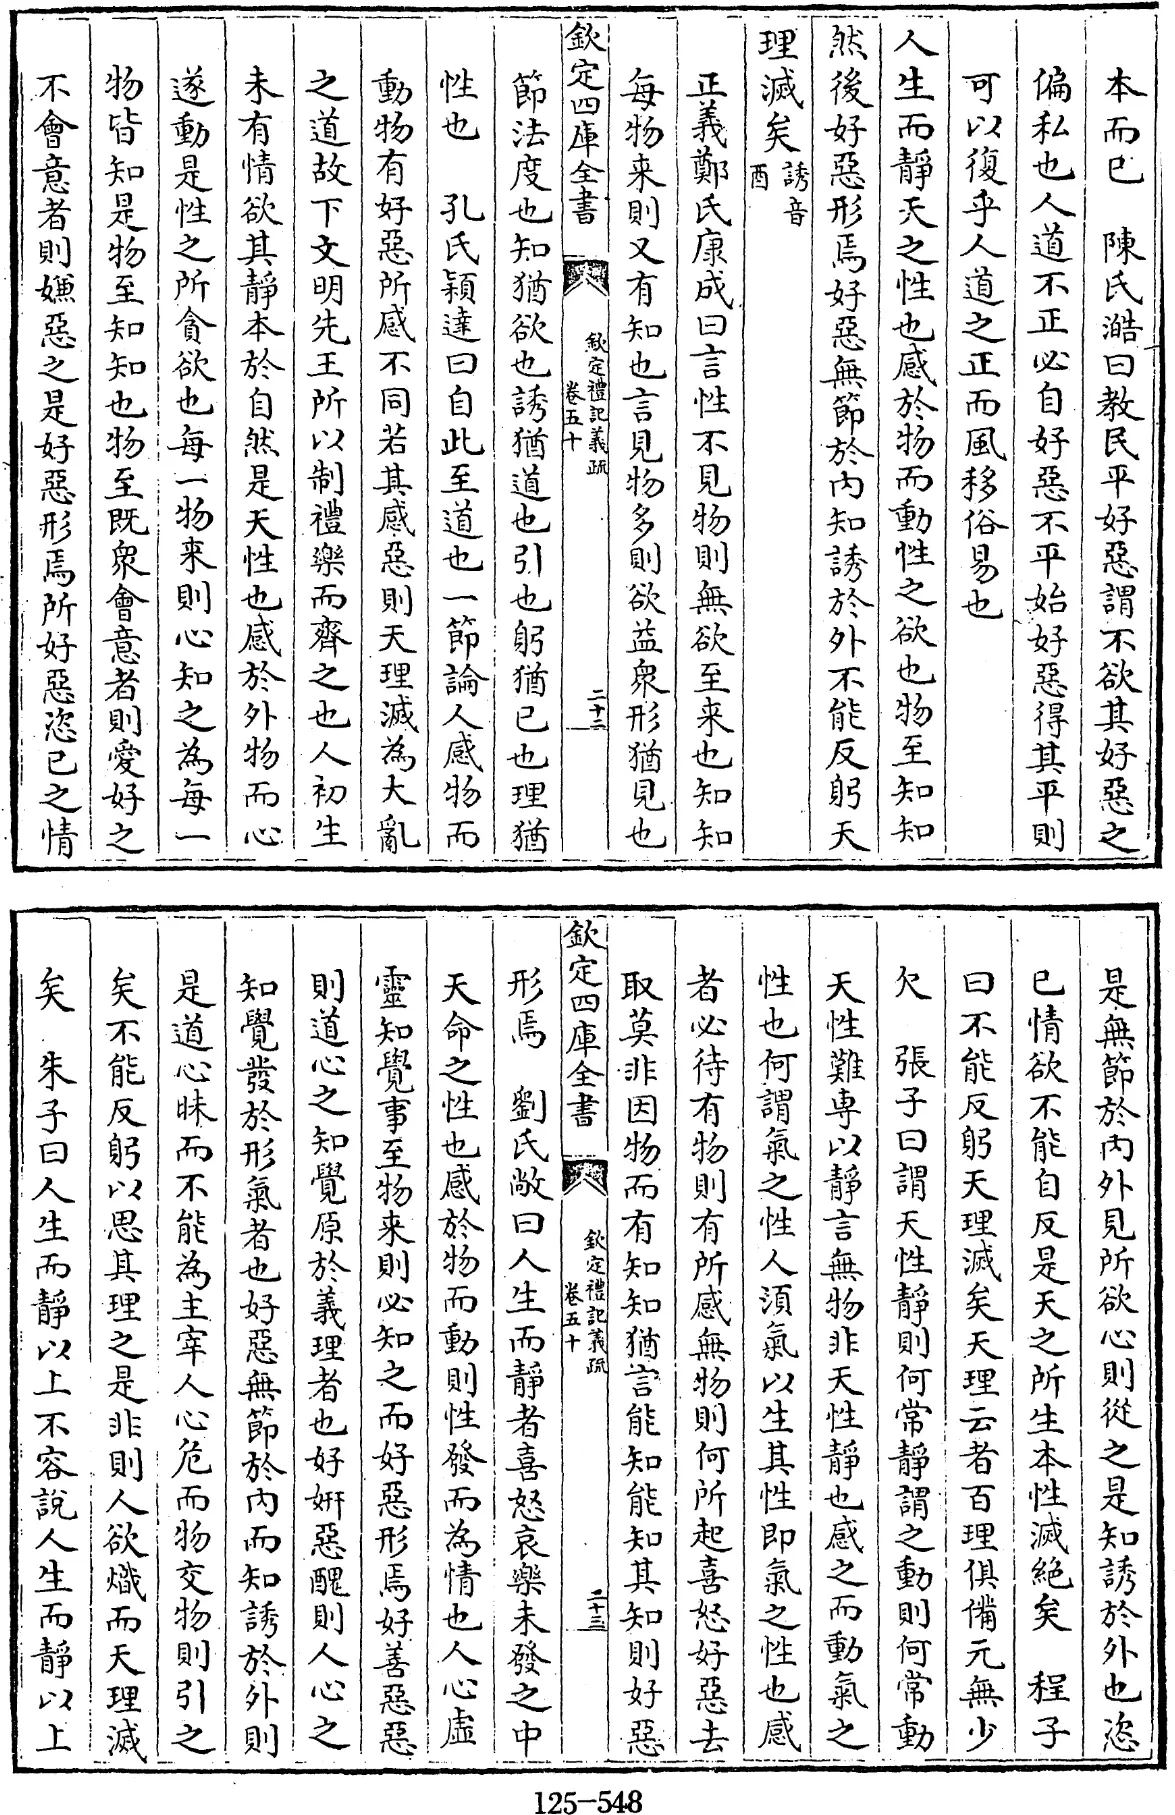 本而已　陳氏澔曰教民平好惡謂不欲其好惡之
偏私也人道不正必自好惡不平始好惡得其平則
可以復乎人道之正而風移俗易也
人生而靜天之性也感於物而動性之欲也物至知知
然後好惡形焉好惡無節於内知誘於外不能反躬天
理滅矣誘音酉
正義鄭氏康成曰言性不見物則無欲至来也知知
每物来則又有知也言見物多則欲益衆形猶見也
欽定四庫全書　欽定禮記義疏卷五十　二十二
節法度也知猶欲也誘猶道也引也躬猶已也理猶
性也　孔氏穎達曰自此至道也一節論人感物而
動物有好惡所感不同若其感惡則天理滅為大亂
之道故下文明先王所以制禮樂而齊之也人初生
未有情欲其靜本於自然是天性也感於外物而心
遂動是性之所貪欲也每一物来則心知之為每一
物皆知是物至知知也物至既衆會意者則愛好之
不會意者則嫌惡之是好惡形焉所好惡恣已之情
是無節於内外見所欲心則從之是知誘於外也恣
已情欲不能自反是天之所生本性滅絶矣　程子
曰不能反躬天理滅矣天理云者百理俱備元無少
欠　張子曰謂天性靜則何常靜謂之動則何常動
天性難専以靜言無物非天性靜也感之而動氣之
性也何謂氣之性人須氣以生其性即氣之性也感
者必待有物則有所感無物則何所起喜怒好惡去
取莫非因物而有知知猶言能知能知其知則好惡
欽定四庫全書　欽定禮記義疏卷五十　二十三
形焉　劉氏敞曰人生而靜者喜怒哀樂未發之中
天命之性也感於物而動則性發而為情也人心虛
靈知覺事至物来則必知之而好惡形焉好善惡惡
則道心之知覺原於義理者也好姸惡醜則人心之
知覺發於形氣者也好惡無節於内而知誘於外則
是道心昧而不能為主宰人心危而物交物則引之
矣不能反躬以思其理之是非則人欲熾而天理滅
矣　朱子曰人生而靜以上不容說人生而靜以上
125-548